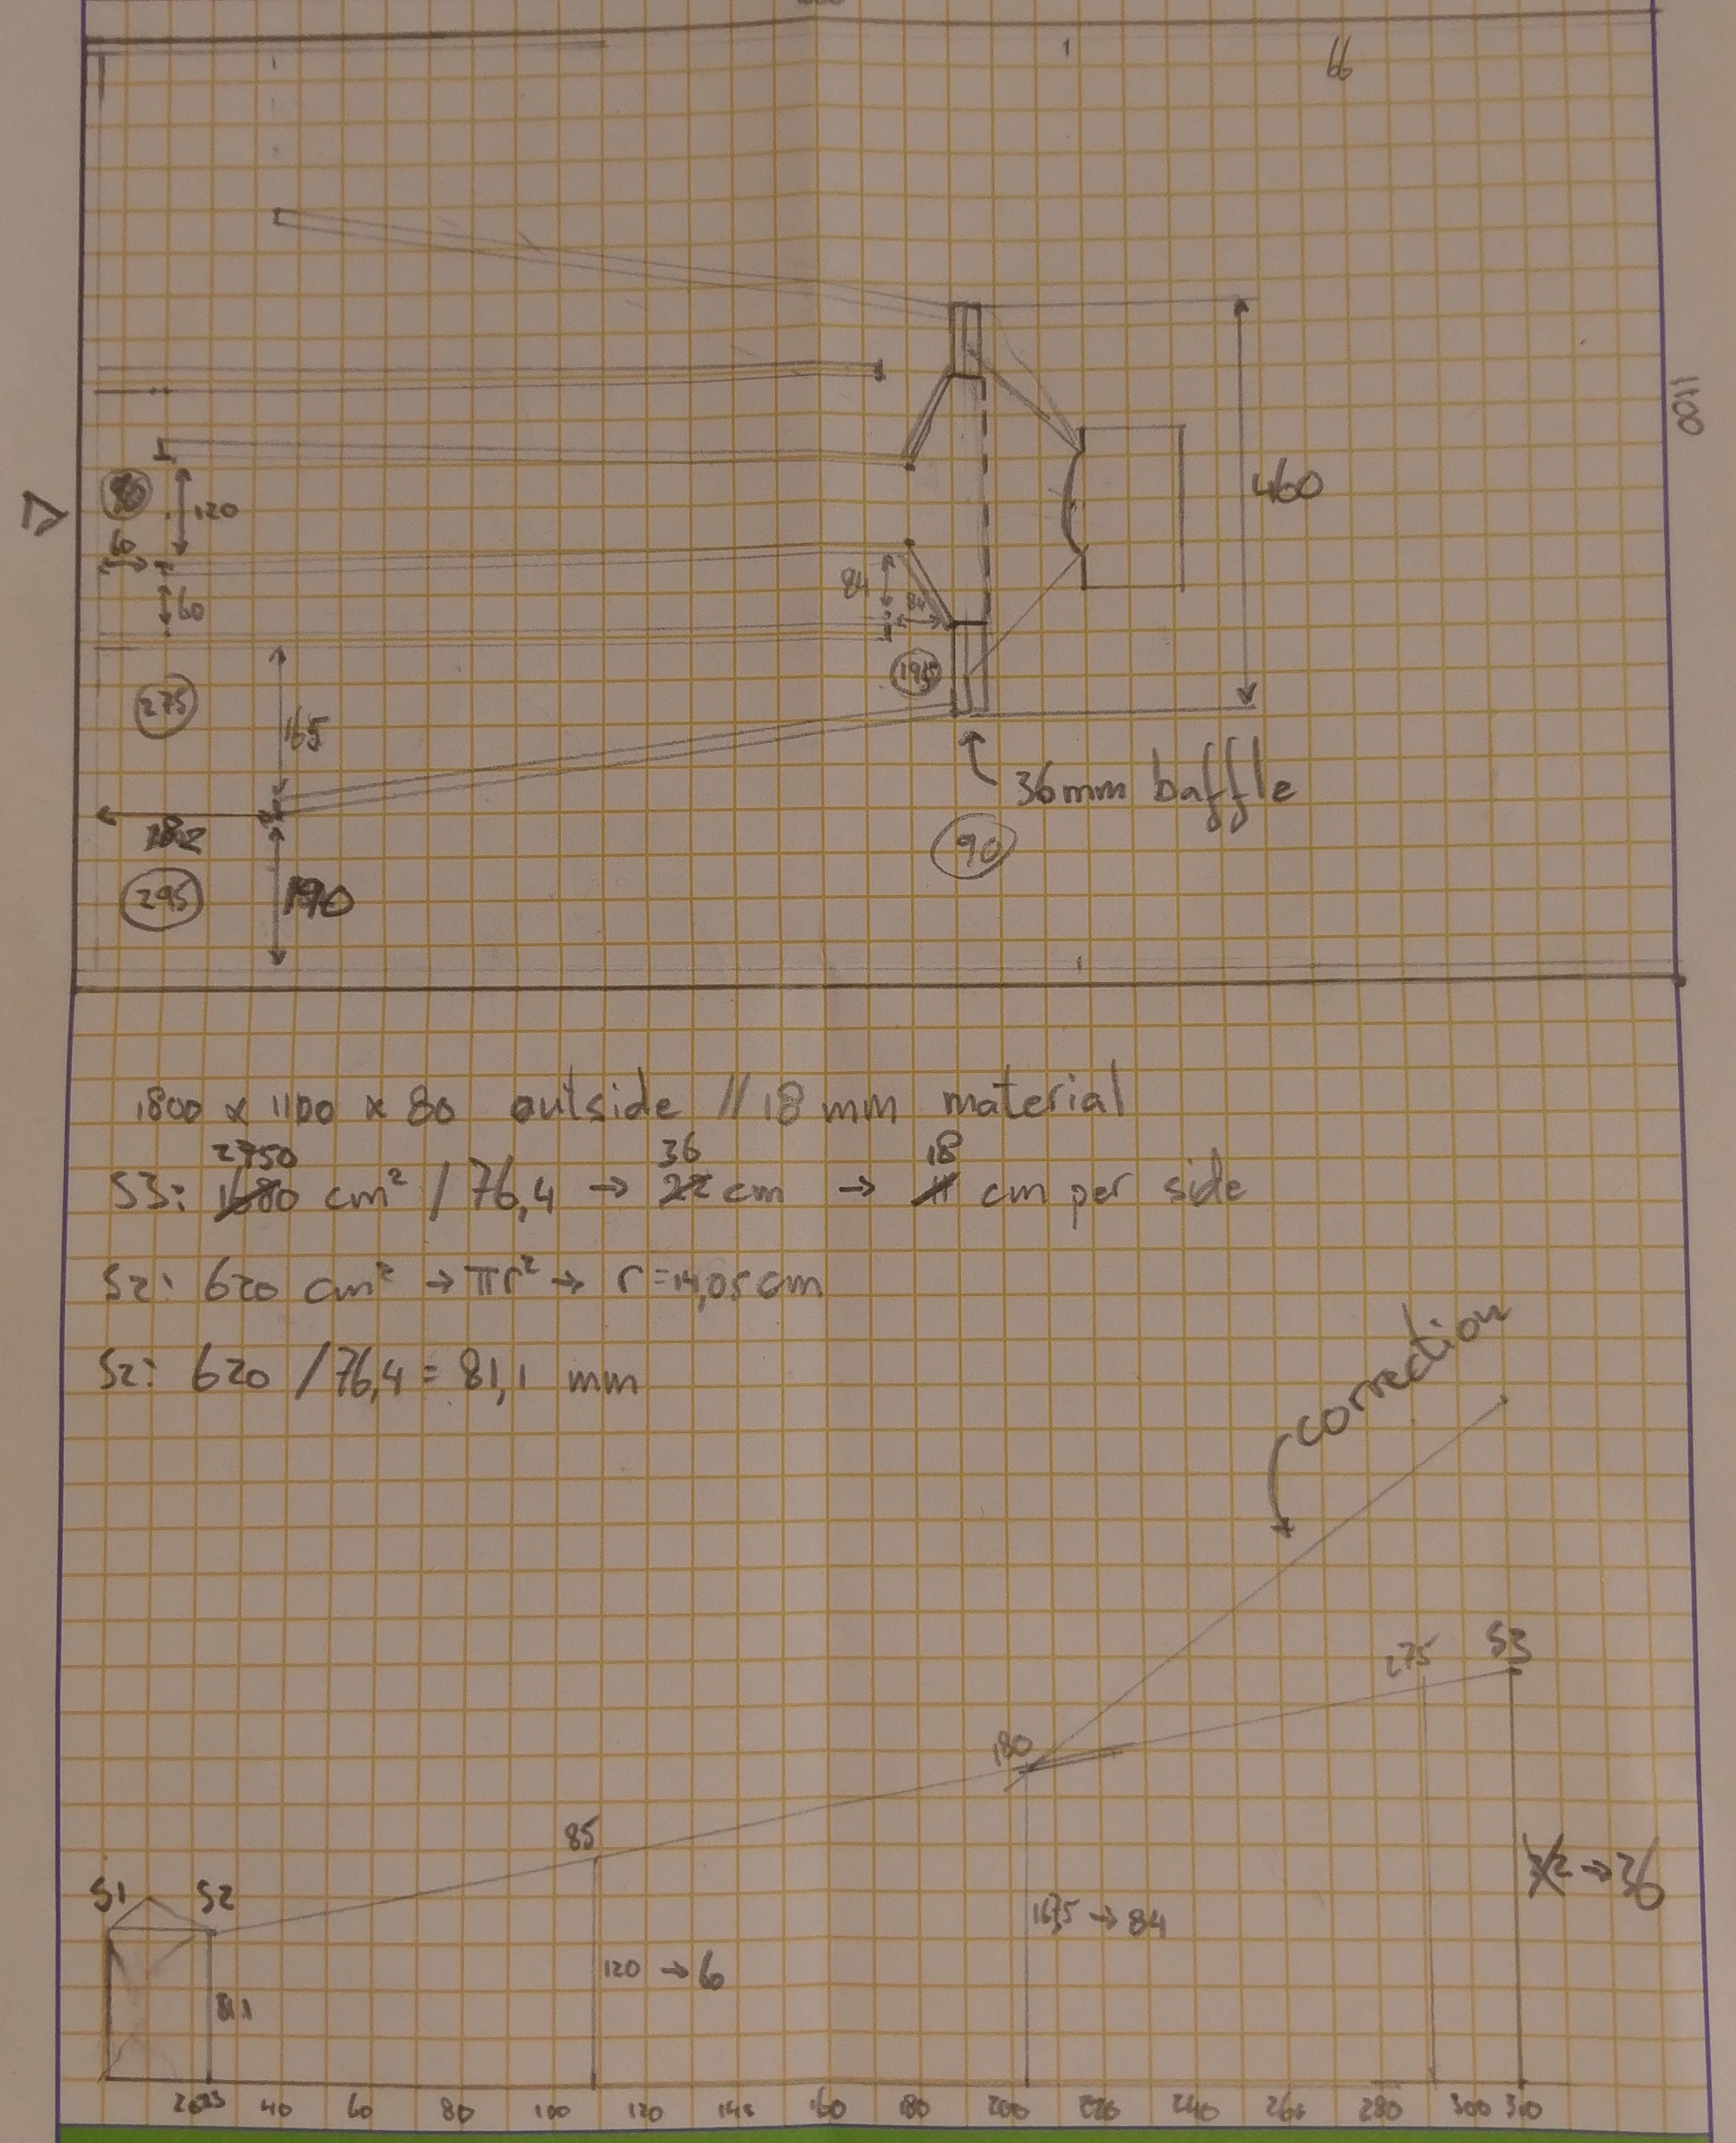 66
1100
460
120
60
60
84
84
195
275
165
182
295
190
36mm baffle
90
1800 x 1100 x 80 outside // 18 mm material
2750 36 18
S3: 1680 cm² / 76,4 → 22 cm → 11 cm per side
S2: 620 cm² → πr² → r = 14,05 cm
S2: 620 / 76,4 = 81,1 mm
correction
275 S3
180
85
S1 S2
→ 36
167,5 → 84
120 → 6
81,1
20 23 40 60 80 100 120 140 160 180 200 220 240 260 280 300 310